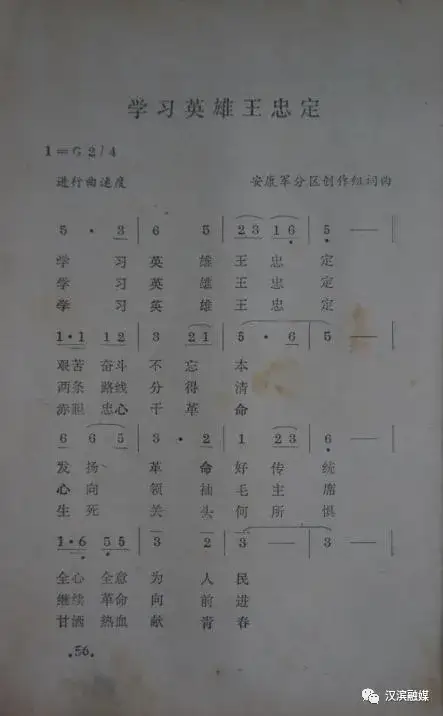 学习英雄王忠定
1=G 2/4
进行曲速度 安康军分区创作组词曲
5 · 3 | 6 5 | 2 3 1 6 | 5 — |
学 习 英 雄 王 忠 定
学 习 英 雄 王 忠 定
学 习 英 雄 王 忠 定
1·1 1 2 | 3 2 4 | 5 · 6 | 5 — |
艰苦 奋斗 不 忘 本
两条 路线 分 得 清
赤胆 忠心 干 革 命
6 6 5 | 3 · 2 | 1 2 3 | 6 — |
发 扬 革 命 好 传 统
心 向 领 袖 毛 主 席
生 死 关 头 何 所 惧
1·6 5 5 | 3 2 | 3 — | 3 — |
全心 全意 为 人 民
继续 革命 向 前 进
甘洒 热血 献 青 春
·56·
汉滨融媒